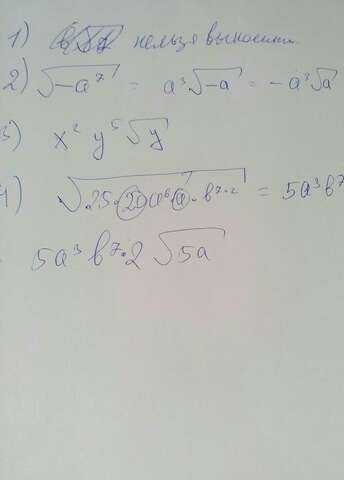 1) нельзя выносить.
2) √-a⁷ = a³√-a = -a³√a
3) x² y⁵ √y
4) √25·20a⁶a·b⁷·² = 5a³b⁷
5a³b⁷·2 √5a